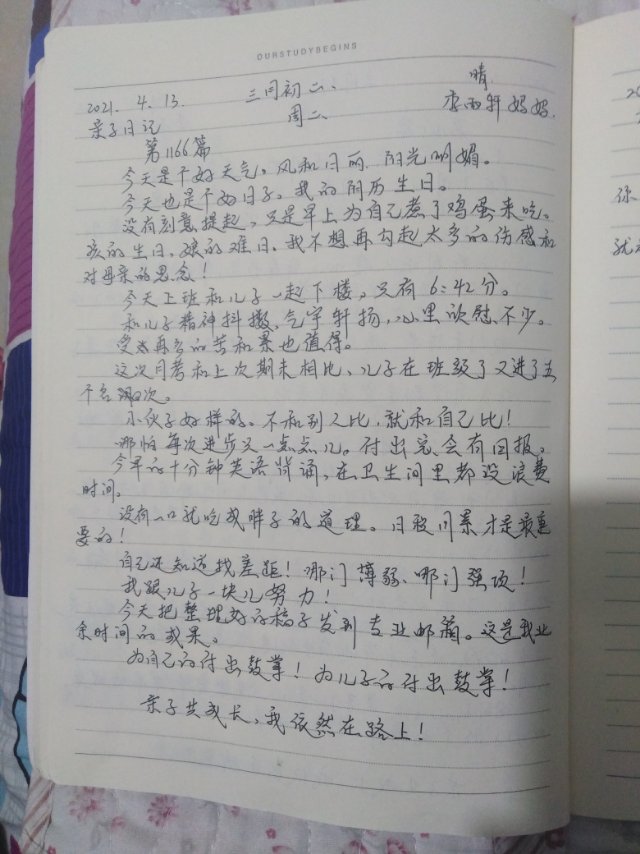 OURSTUDYBEGINS
2021. 4. 13. 三月初二、 晴
亲子日记 周二、 李雨轩妈妈.
第1166篇
今天是个好天气。风和日丽, 阳光明媚。
今天也是个好日子。我的阴历生日。
没有刻意提起,只是早上为自己煮了鸡蛋来吃。
孩的生日,娘的难日。我不想再勾起太多的伤感和
对母亲的思念!
今天上班和儿子一起下楼,只有6:42分。
和儿子精神抖擞、气宇轩扬,心里欣慰不少。
受再多的苦和累也值得。
这次月考和上次期末相比、儿子在班级了又进了五
个名次。
小伙子好样的。不和别人比,就和自己比!
哪怕每次进步只一点点儿。付出总会有回报。
今早的十分钟英语背诵,在卫生间里都没浪费
时间。
没有一口就吃成胖子的道理。日积月累才是最重
要的!
自己还知道找差距!哪门薄弱、哪门强项!
我跟儿子一块儿努力!
今天把整理好的稿子发到专业邮箱。这是我业
余时间的成果。
为自己的付出鼓掌!为儿子的付出鼓掌!
亲子共成长,我依然在路上!
你